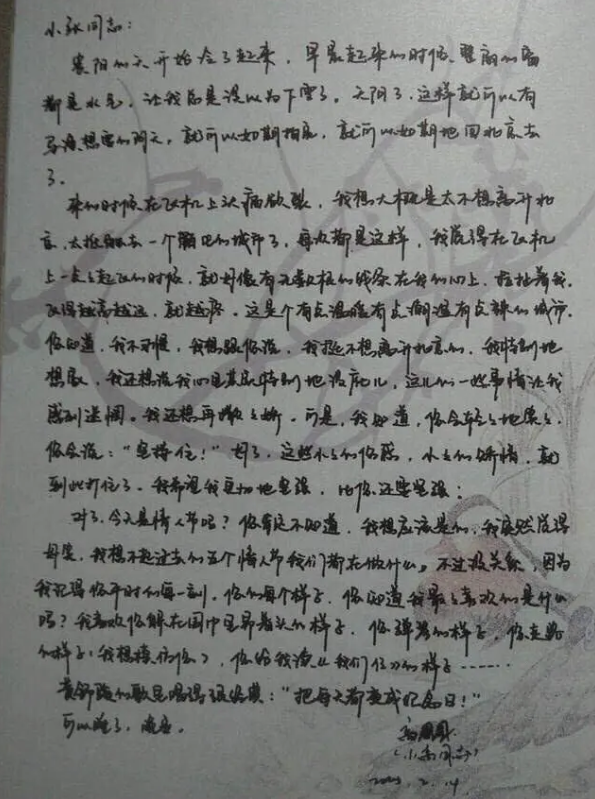 小张同志：
襄阳的天开始冷了起来，早晨起来的时候，四周的窗
都是水气，让我总是误以为下雪了。天阴了，这样就可以有
导演想要的阴天，就可以如期拍摄，就可以如期地回北京去
了。
来的时候在飞机上头痛欲裂，我想大概是太不想离开北
京，太抵触去一个陌生的城市了，每次都是这样，我觉得在飞机
上一点点起飞的时候，就好像有无数根的线系在我的心上，拉扯着我，
飞得越高越远，就越疼。这是个有点温暖有点潮湿有点辣的城市。
你知道，我不习惯，我想跟你说，我挺不想离开北京的，我特别地
想家，我还想说我心里其实特别地没底儿，这儿的一些事情让我
感到迷惘。我还想再撒撒娇。可是，我知道，你会轻轻地笑笑，
你会说："坚持住！"好了，这些小小的伤感，小小的矫情，就
到此打住了。我希望我更加地坚强，比你还要坚强；
对了，今天是情人节吗？你肯定不知道，我想应该是的，我突然觉得
好笑，我想不起过去的五个情人节我们都在做什么。不过没关系，因为
我记得你平时的每一刻，你的每个样子，你知道我最喜欢的是什么
吗？我喜欢你躲在围巾里昂着头的样子，你弹琴的样子，你走路
的样子（我想模仿你），你给我读《我们仨》的样子……
黄舒骏的歌是唱得很好其："把每天都变成纪念日！"
可以睡了，晚安。
（小高同志）
2003.2.14